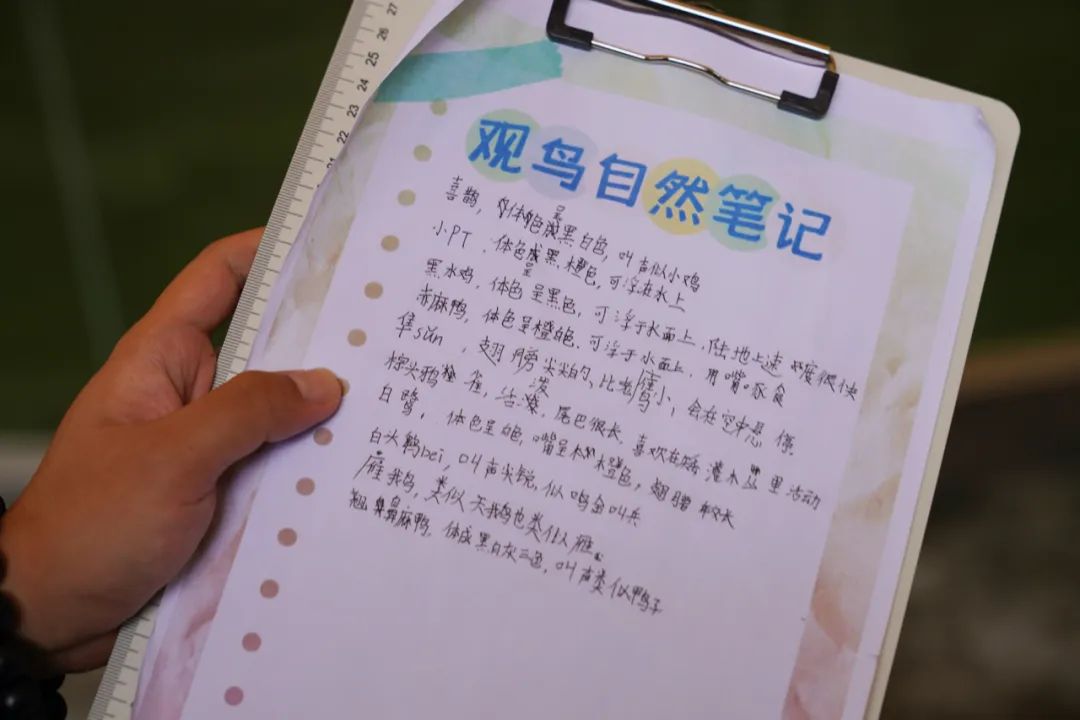 27
26
25
24
23
22
21
观鸟自然笔记
喜鹊，体色呈黑白色，叫声似小鸡
小PT，体色呈黑橙色，可浮在水上
黑水鸡，体色呈黑色，可浮于水面上，陆地上速度很快
赤麻鸭，体色呈橙色，可浮于水面上，用嘴啄食
隼sǔn，翅膀尖尖的，比鹰小，会在空中悬停
棕头鸦雀，活泼，尾巴很长，喜欢在灌木丛里活动
白鹭，体色呈白色，嘴呈橙色，翅膀较长
白头鹎bei，叫声尖锐，似鸣金叫兵
雁鹅，类似天鹅也类似雁。
翘鼻麻鸭，体成黑白灰三色，叫声类似鸭子